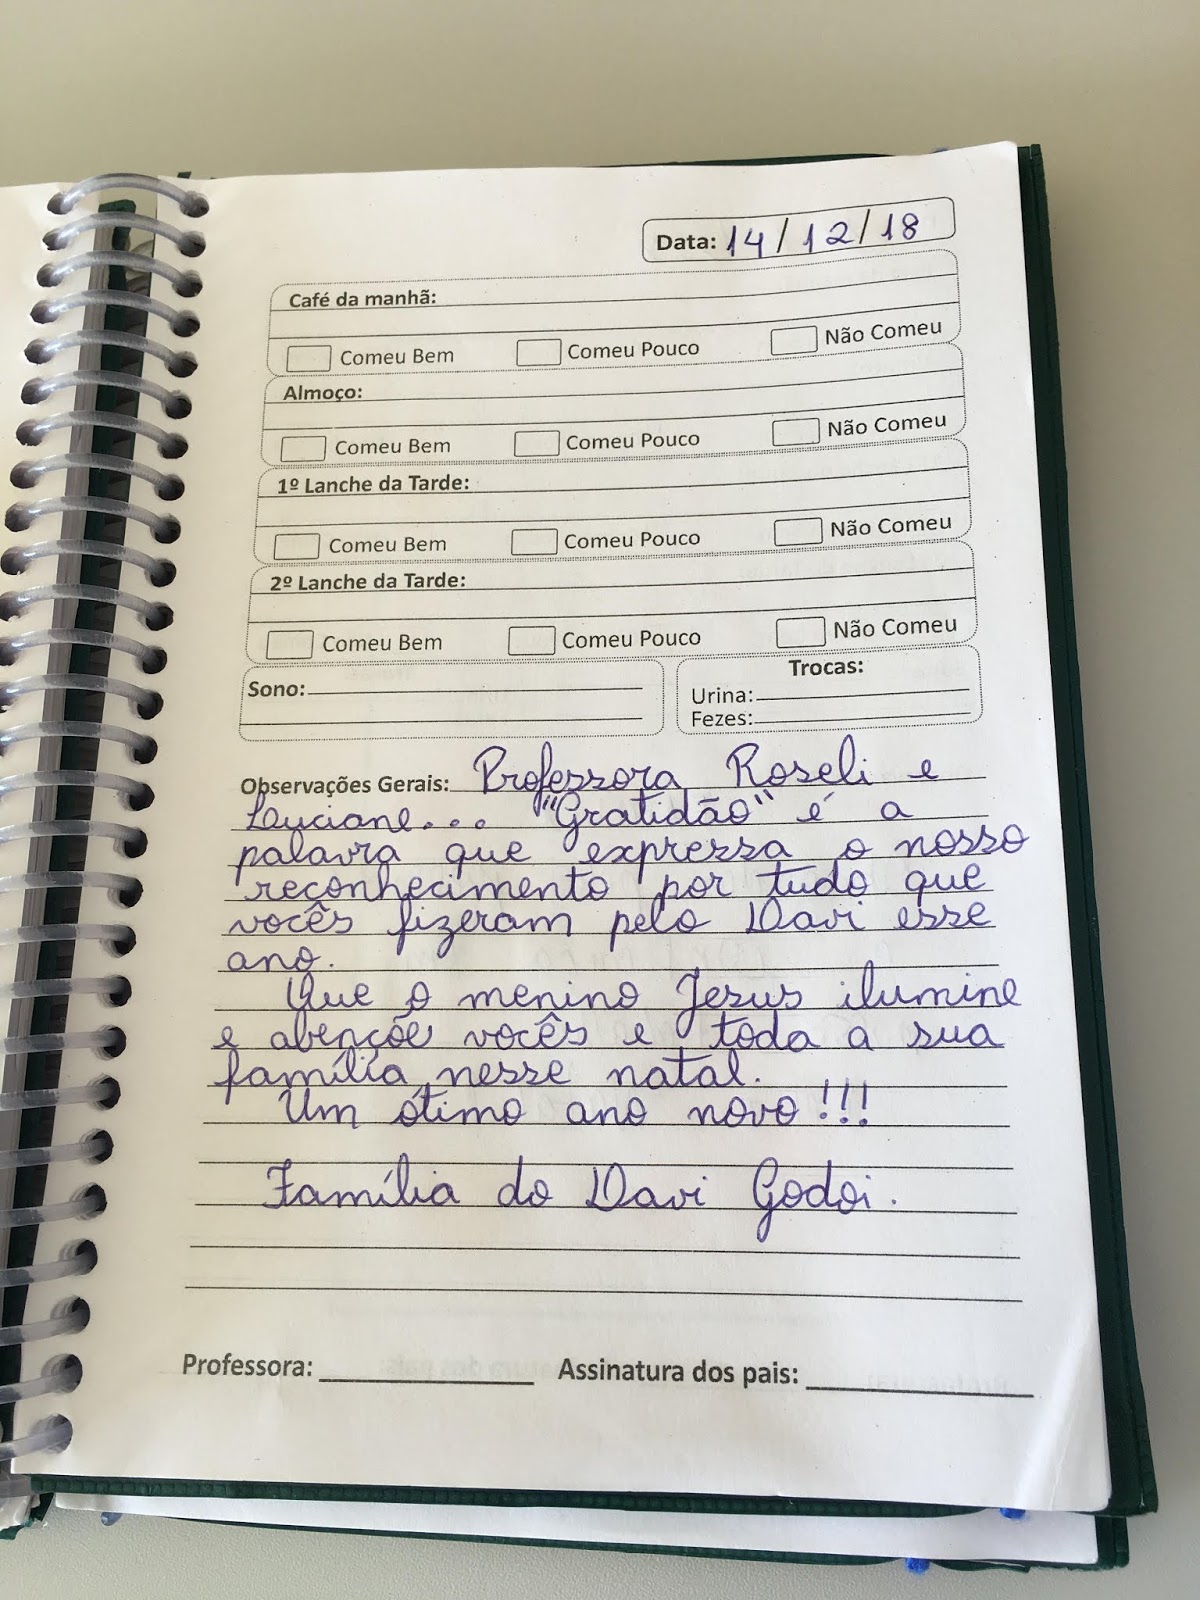 Data: 14/12/18
Café da manhã:
Comeu Bem Comeu Pouco Não Comeu
Almoço:
Comeu Bem Comeu Pouco Não Comeu
1º Lanche da Tarde:
Comeu Bem Comeu Pouco Não Comeu
2º Lanche da Tarde:
Comeu Bem Comeu Pouco Não Comeu
Sono:
Trocas:
Urina:
Fezes:
Observações Gerais: Professora Roseli e
Luciane... "Gratidão" é a
palavra que expressa o nosso
reconhecimento por tudo que
vocês fizeram pelo Davi esse
ano.
Que o menino Jesus ilumine
e abençõe vocês e toda a sua
família nesse natal.
Um ótimo ano novo!!!
Família do Davi Godoi.
Professora: Assinatura dos pais: